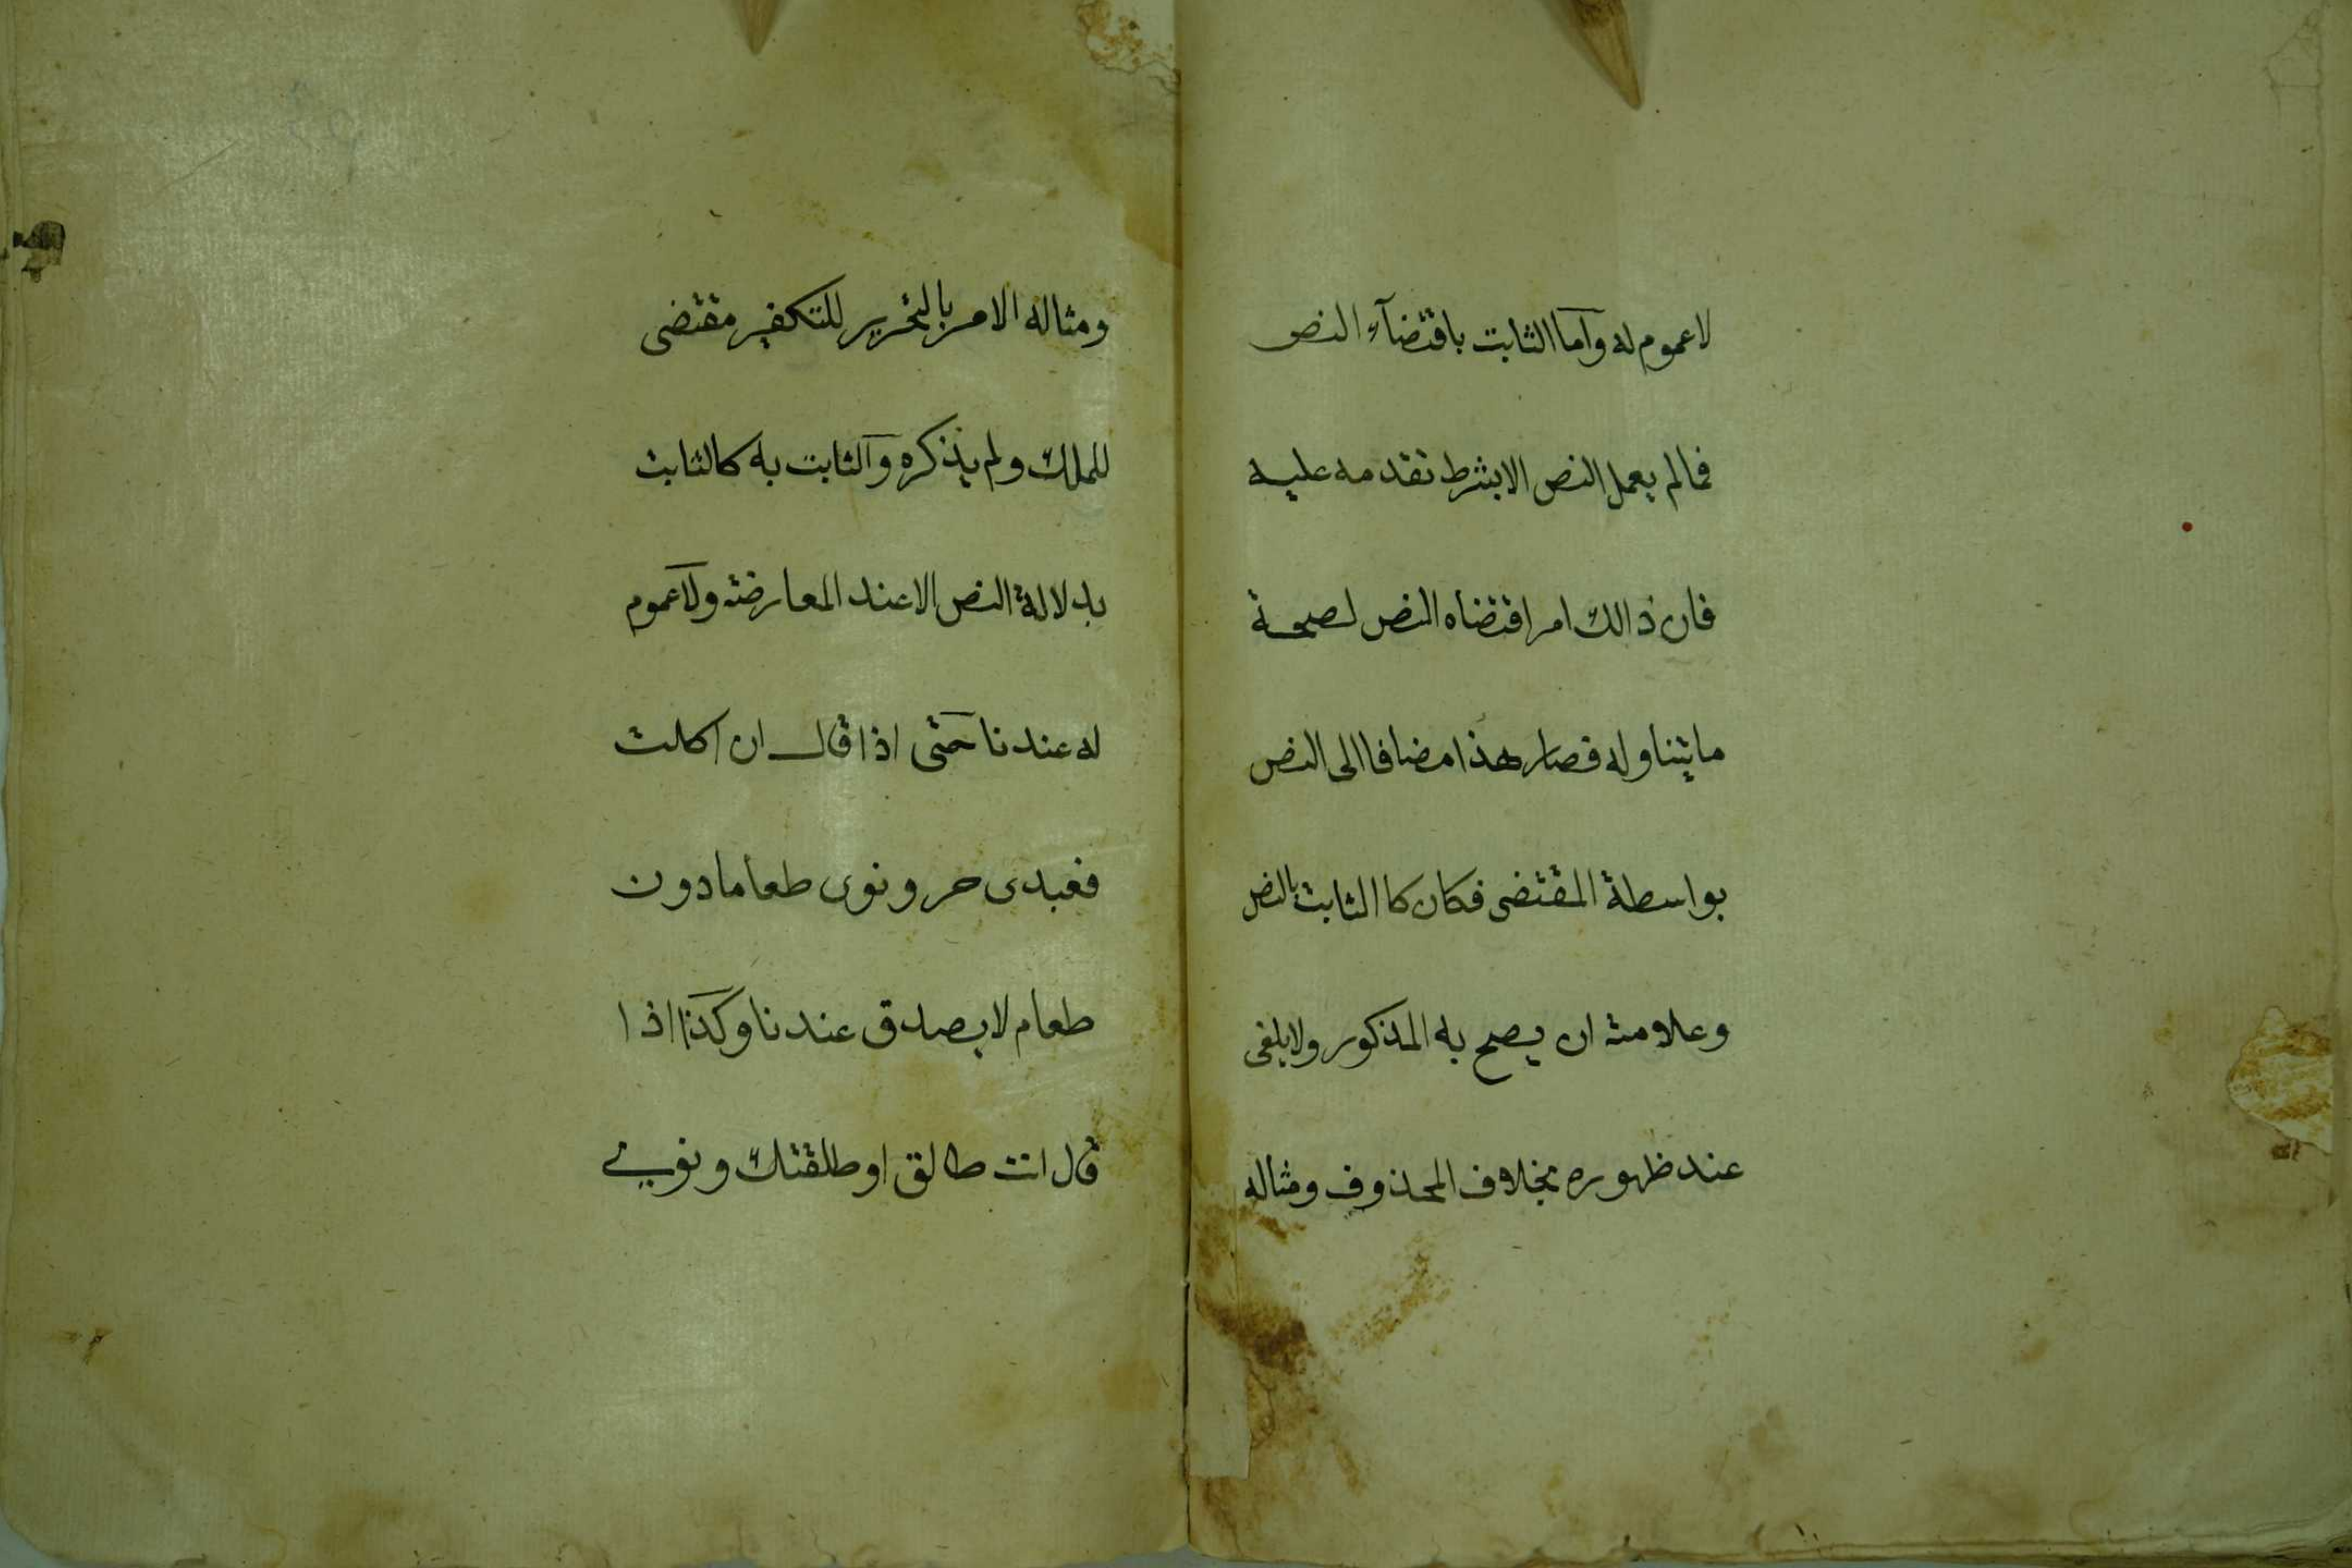 لا عموم له وآما الثابت باقتضآء النص
فمالم يعمل النص الا بشرط تقدمه عليه
فان ذالك امر اقتضاه النص لصحة
ما يتناوله فصار هذا مضافا الى النص
بواسطة المقتضى فكان كا الثابت بالنص
وعلامته ان يصح به المذكور ولا يلغى
عند ظهوره بخلاف المحذوف ومثاله
ومثاله الامر بالتحرير للتكفير مقتضى
للملك ولم يذكره وآلثابت به كالثابت
بدلالة النص الا عند المعارضة ولآ عموم
له عندنا حتى اذا قال ان اكلت
فعبدى حر ونوى طعاما دون
طعام لا يصدق عندنا وكذا اذا
قال انت طالق او طلقتك ونوى